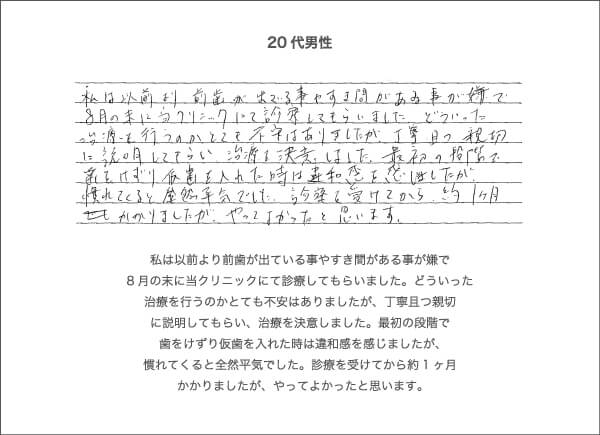 20代男性
私は以前より前歯が出てる事やすき間がある事が嫌で
8月の末に当クリニックにて診療してもらいました。どういった
治療を行うのかとても不安はありましたが、丁寧且つ親切
に説明してもらい、治療を決意しました。最初の段階で
歯をけずり仮歯を入れた時は違和感を感じましたが
慣れてくると全然平気でした。診療を受けてから、約1ヶ月
かかりましたが、やってよかったと思います。
私は以前より前歯が出ている事やすき間がある事が嫌で
8月の末に当クリニックにて診療してもらいました。どういった
治療を行うのかとても不安はありましたが、丁寧且つ親切
に説明してもらい、治療を決意しました。最初の段階で
歯をけずり仮歯を入れた時は違和感を感じましたが、
慣れてくると全然平気でした。診療を受けてから約1ヶ月
かかりましたが、やってよかったと思います。